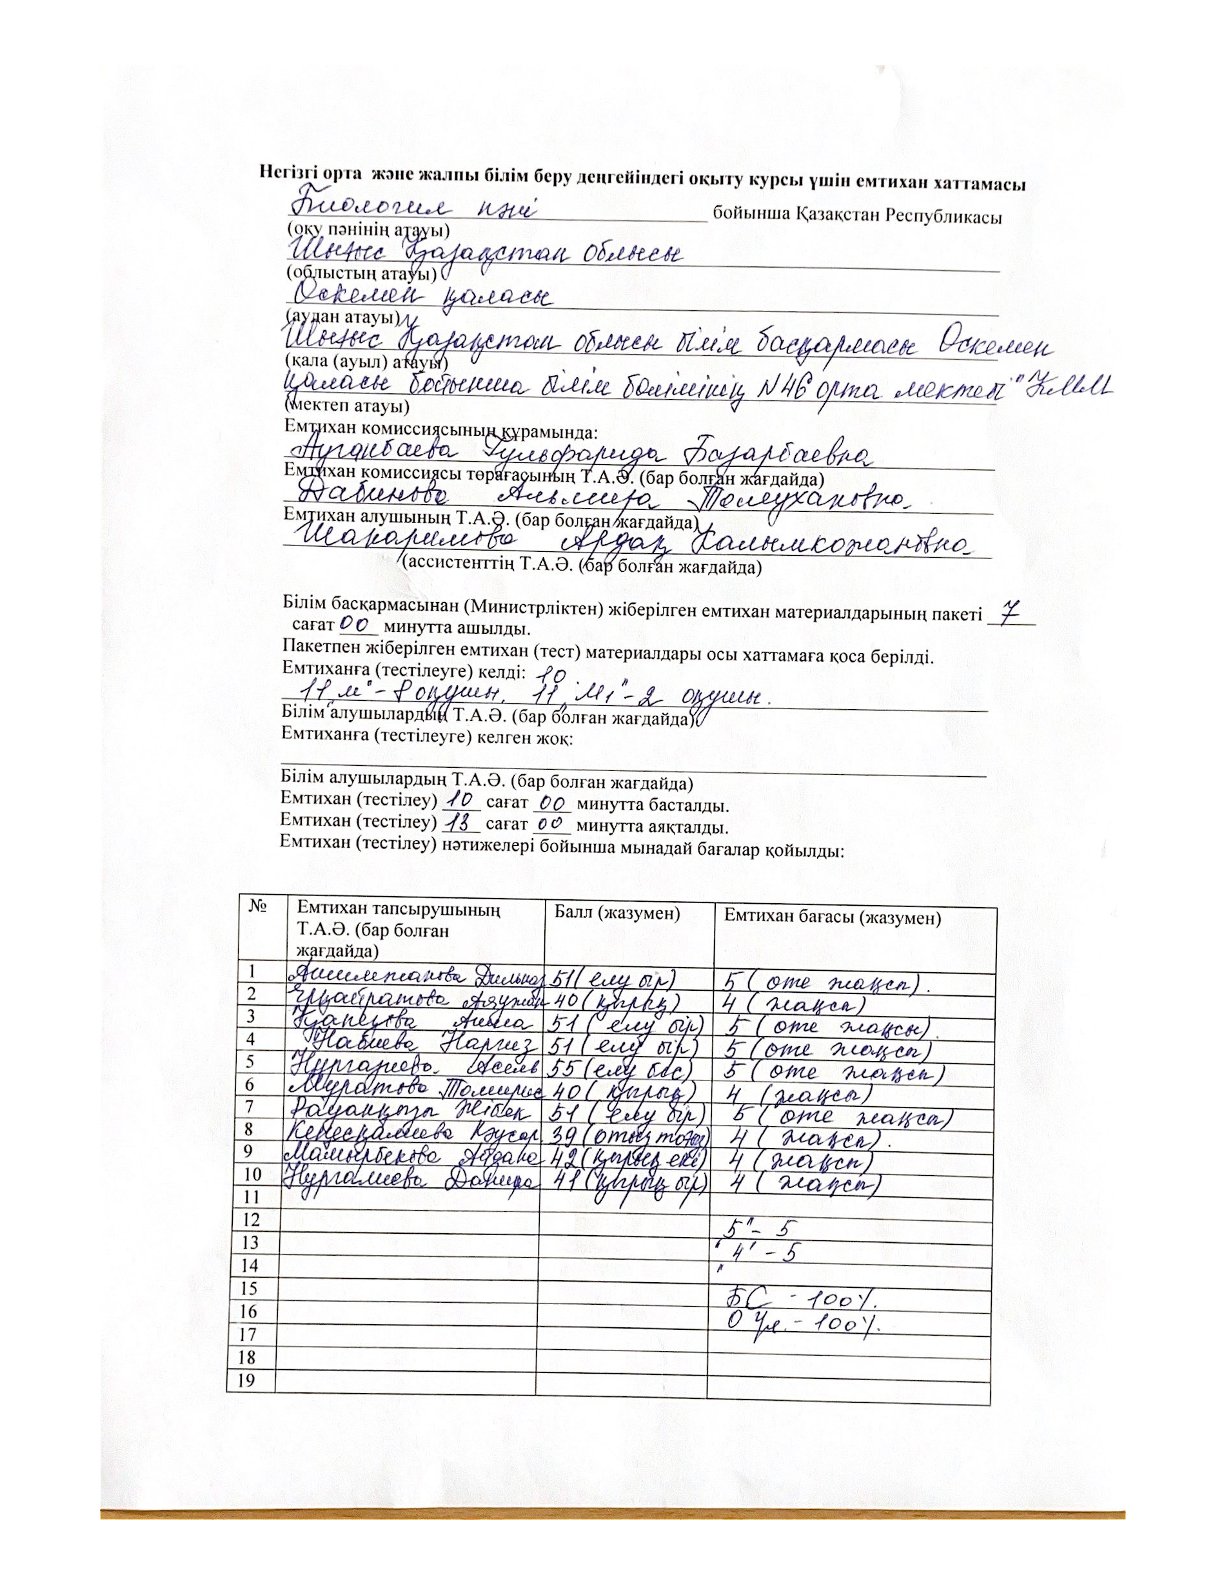 Негізгі орта және жалпы білім беру деңгейіндегі оқыту курсы үшін емтихан хаттамасы
Биология пәні бойынша Қазақстан Республикасы
(оқу пәнінің атауы)
Шығыс Қазақстан облысы
(облыстың атауы)
Өскемен қаласы
(аудан атауы)
Шығыс Қазақстан облысы білім басқармасы Өскемен
(қала (ауыл) атауы)
қаласы бойынша білім бөлімінің №46 орта мектебі" КММ
(мектеп атауы)
Емтихан комиссиясының құрамында:
Ауганбаева Гульфарида Базарбаевна
Емтихан комиссиясы төрағасының Т.А.Ә. (бар болған жағдайда)
Дабинова Альмира Толеухановна
Емтихан алушының Т.А.Ә. (бар болған жағдайда)
Шакаримова Ардақ Калымкожановна
(ассистенттің Т.А.Ә. (бар болған жағдайда)
Білім басқармасынан (Министрліктен) жіберілген емтихан материалдарының пакеті 7
сағат 00 минутта ашылды.
Пакетпен жіберілген емтихан (тест) материалдары осы хаттамаға қоса берілді.
Емтиханға (тестілеуге) келді: 10.
11 "м" - 8 оқушы, 11 "м1" - 2 оқушы.
Білім алушылардың Т.А.Ә. (бар болған жағдайда)
Емтиханға (тестілеуге) келген жоқ:
Білім алушылардың Т.А.Ә. (бар болған жағдайда)
Емтихан (тестілеу) 10 сағат 00 минутта басталды.
Емтихан (тестілеу) 13 сағат 00 минутта аяқталды.
Емтихан (тестілеу) нәтижелері бойынша мынадай бағалар қойылды:
№ Емтихан тапсырушының Балл (жазумен) Емтихан бағасы (жазумен)
Т.А.Ә. (бар болған
жағдайда)
1 Ашимжанова Дильназ 51 (елу бір) 5 (өте жақсы).
2 40 (қырық) 4 (жақсы)
3 51 (елу бір) 5 (өте жақсы).
4 Набиева Наргиз 51 (елу бір) 5 (өте жақсы)
5 Нургазиева Асель 55 (елу бес) 5 (өте жақсы)
6 Муратова Томирис 40 (қырық) 4 (жақсы)
7 Рауанқызы Жібек 51 (елу бір) 5 (өте жақсы)
8 Кеңесқалиева Кәусар 39 (отыз тоғыз) 4 (жақсы).
9 Мамырбекова Айдана 42 (қырық екі) 4 (жақсы)
10 Нургалиева Данира 41 (қырық бір) 4 (жақсы)
11
12 "5" - 5
13 "4" - 5
14
15 БС - 100%.
16 О Үл. - 100%.
17
18
19